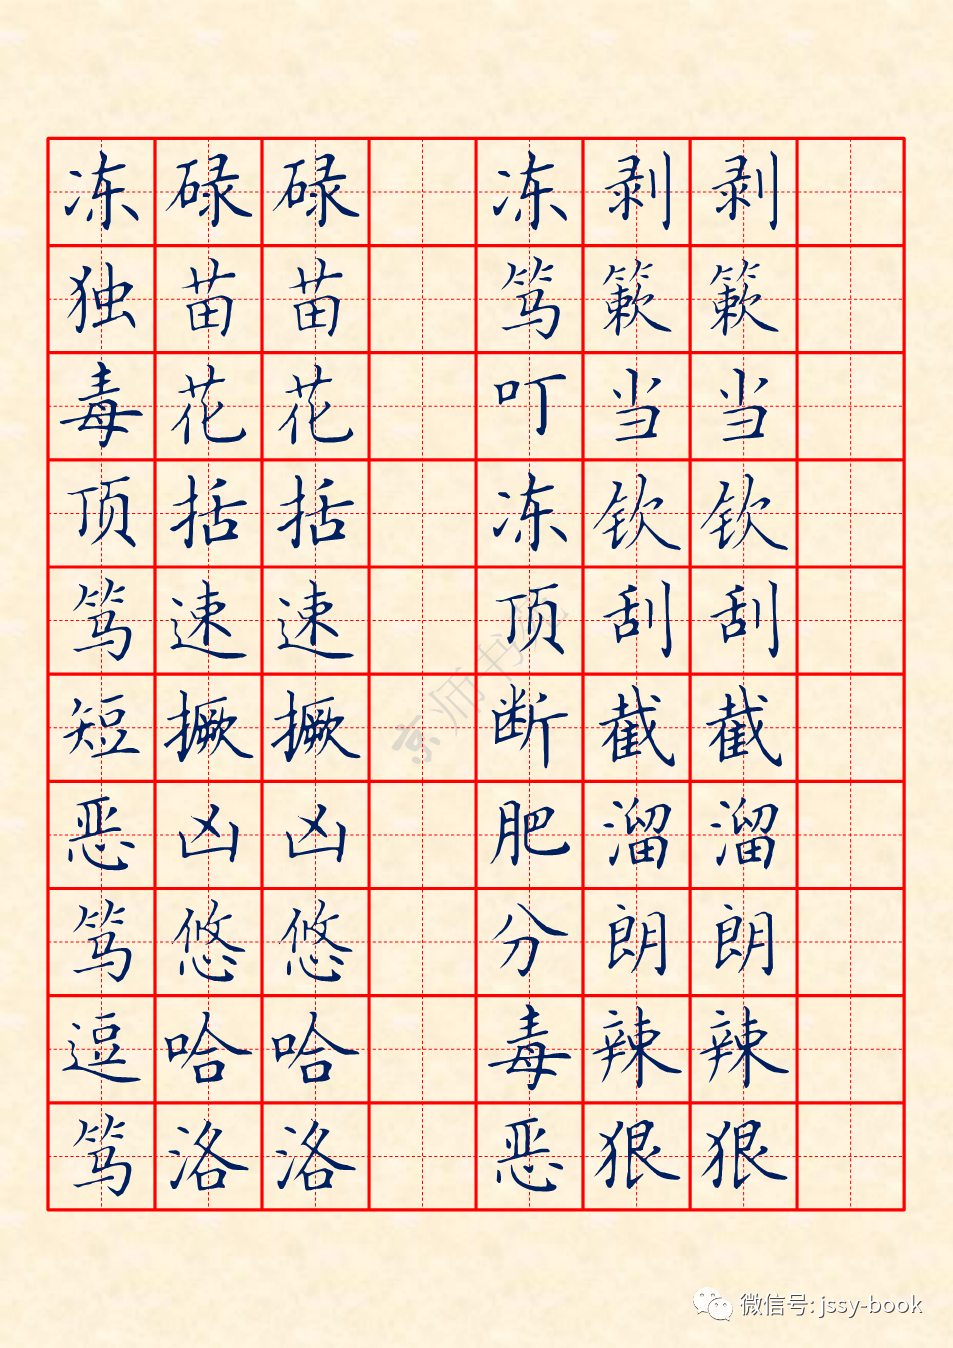 冻碌碌 冻剥剥
独苗苗 笃簌簌
毒花花 叮当当
顶括括 冻钦钦
笃速速 顶刮刮
短撅撅 断截截
恶凶凶 肥溜溜
笃悠悠 分朗朗
逗哈哈 毒辣辣
笃洛洛 恶狠狠
京师书院
微信号: jssy-book